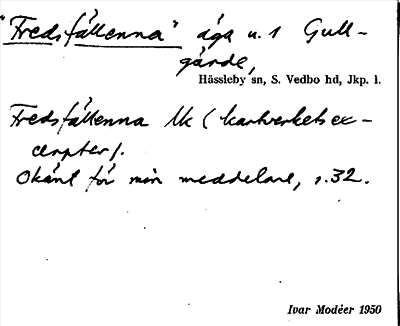 "Fredsfållenna" äga u. 1 Gull-
gårde,
Hässleby sn, S. Vedbo hd, Jkp. l.
Fredsfållenna Uk (kartverketsex-
cerpter).
Okänt för min meddelare, s. 32.
Ivar Modéer 1950